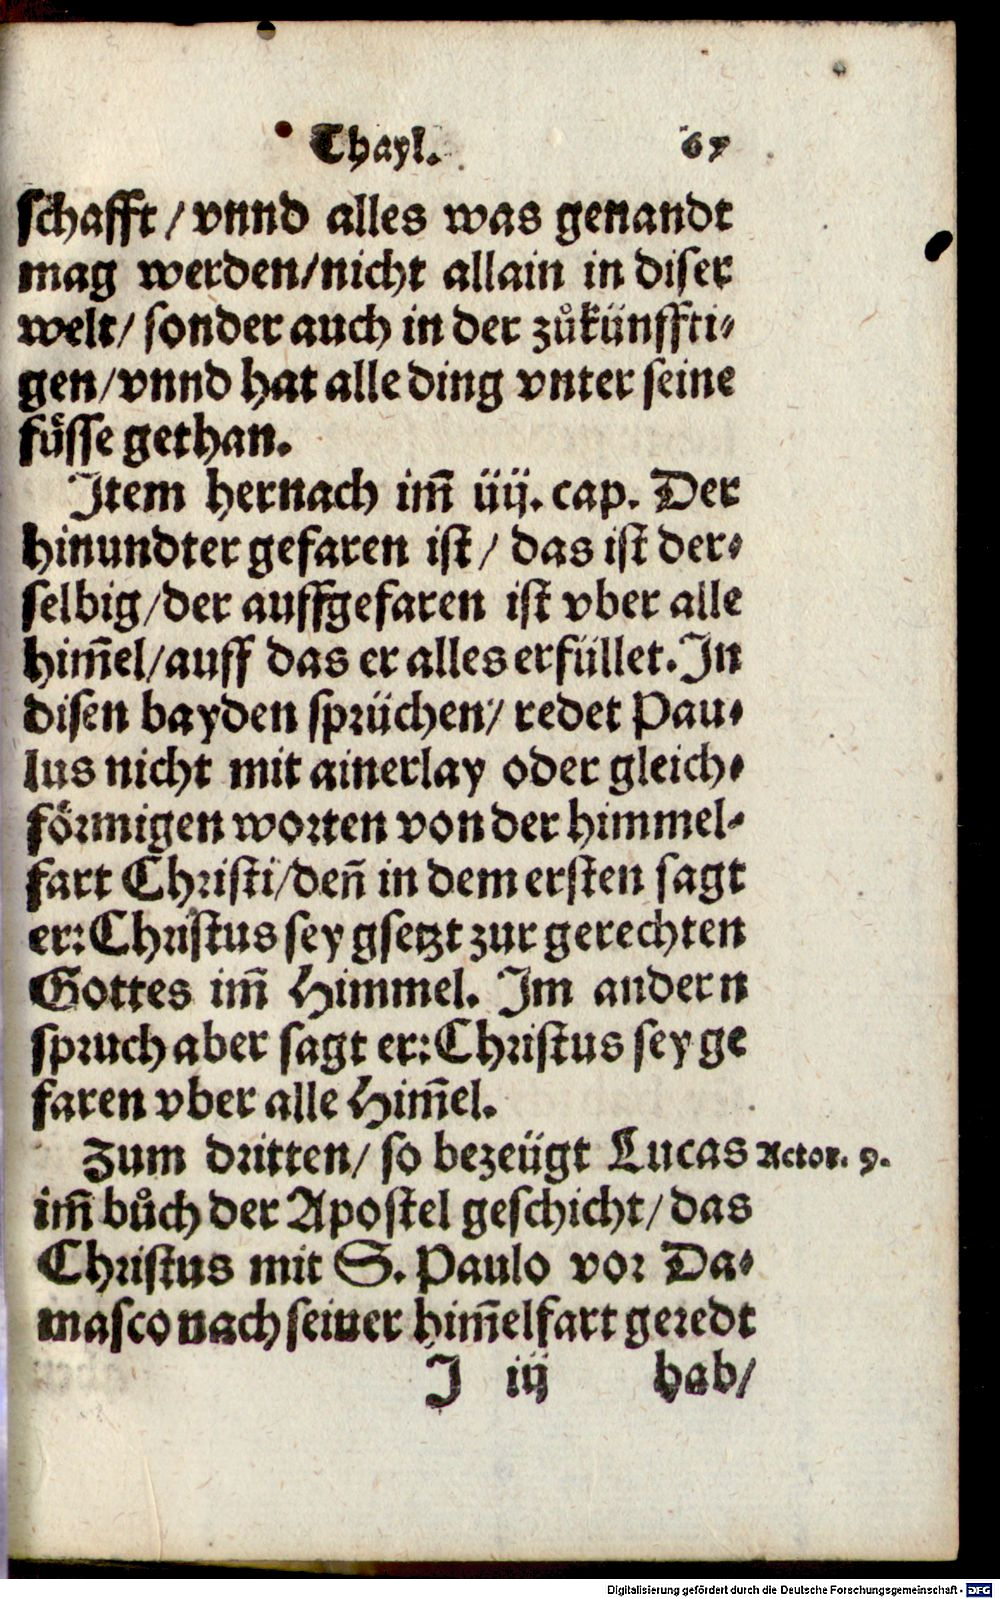 Thayl. 67
schafft / vnnd alles was genandt
mag werden/nicht allain in diser
welt/ sonder auch in der zůkünffti⸗
gen/vnnd hat alle ding vnter seine
füsse gethan.
Item hernach im̄ iiij. cap. Der
hinundter gefaren ist / das ist der⸗
selbig/der auffgefaren ist vber alle
him̄el/auff das er alles erfüllet. In
disen bayden sprüchen/ redet Pau⸗
lus nicht mit ainerlay oder gleich⸗
förmigen worten von der himmel⸗
fart Christi/den̄ in dem ersten sagt
er: Christus sey gsetzt zur gerechten
Gottes im̄ Himmel. Im andern
spruch aber sagt er: Christus sey ge
faren vber alle Him̄el.
Zum dritten/ so bezeügt Lucas Actor. 9.
im̄ bůch der Apostel geschicht/ das
Christus mit S. Paulo vor Da⸗
masco nach seiner him̄elfart geredt
J iij hab/
Digitalisierung gefördert durch die Deutsche Forschungsgemeinschaft - DFG